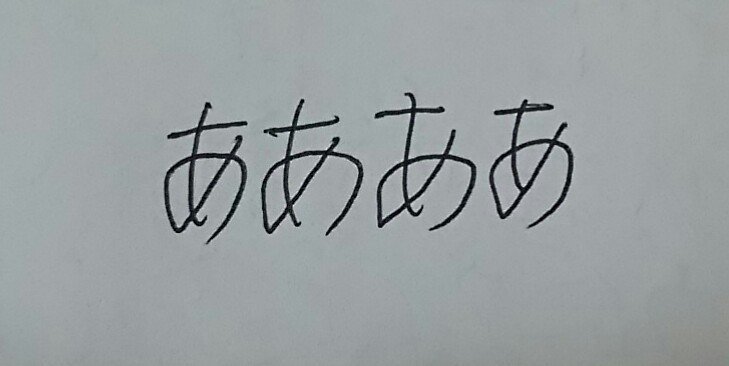 ああああ